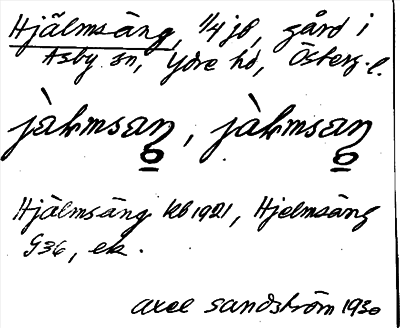 Hjälmsäng, 1/4 jd, gård i
Asby sn, Ydre hd, Österg. l.
jàlmsæŋ, jàlmsæŋ
Hjälmsäng kb 1921, Hjelmsäng
G36, ek.
Axel Sandström 1930